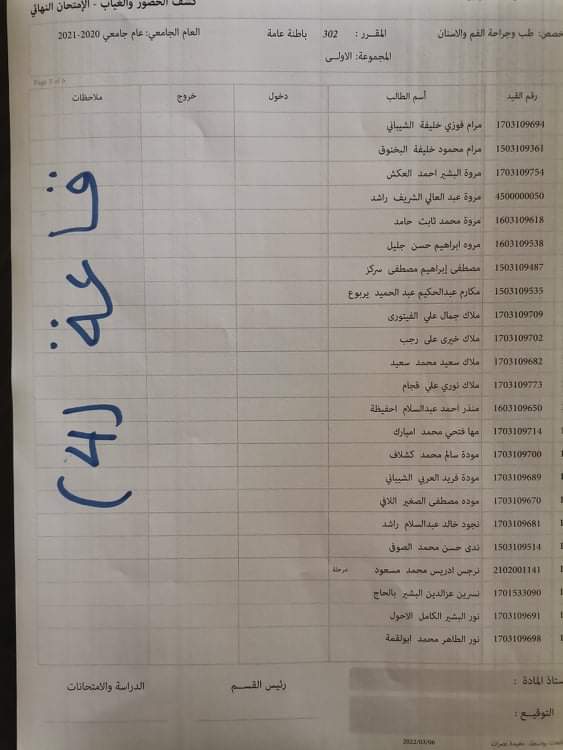 كشف الحضور والغياب - الإمتحان النهائي
خصص: طب وجراحة الفم والاسنان المقــرر : 302 باطنة عامة العام الجامعي: عام جامعي 2020-2021
المجموعة: الاولــى
Page 5 of 6
رقم القيد أسم الطالب دخول خروج ملاحظات
1703109694 مرام فوزي خليفة الشيباني
1503109361 مرام محمود خليفة البخنوق
1703109754 مروة البشير احمد العكش
4500000050 مروة عبد العالي الشريف راشد
1603109618 مروة محمد ثابت حامد
1603109538 مروه ابراهيم حسن جليل
1503109487 مصطفى إبراهيم مصطفى سركز
1503109535 مكارم عبدالحكيم عبد الحميد يربوع
1703109709 ملاك جمال علي الفيتورى
1703109702 ملاك خيرى على رجب
1703109682 ملاك سعيد محمد سعيد
1703109773 ملاك نوري علي فجام
1603109650 منذر احمد عبدالسلام احفيظة
1703109714 مها فتحي محمد امبارك
1703109700 مودة سالم محمد كشلاف
1703109689 مودة فريد العربي الشيباني
1703109670 موده مصطفى الصغير اللافي
1703109681 نجود خالد عبدالسلام راشد
1503109514 ندى حسن محمد الصوفي
2102001141 نرجس ادريس محمد مسعود مرحلة
1701533090 نسرين عزالدين البشير بالحاج
1703109691 نور البشير الكامل الاحول
1703109698 نور الطاهر محمد ابولقمة
قاعة (4)
ستاذ المادة : رئيس القســم الدراسة والامتحانات
التوقيـع :
2022/03/06